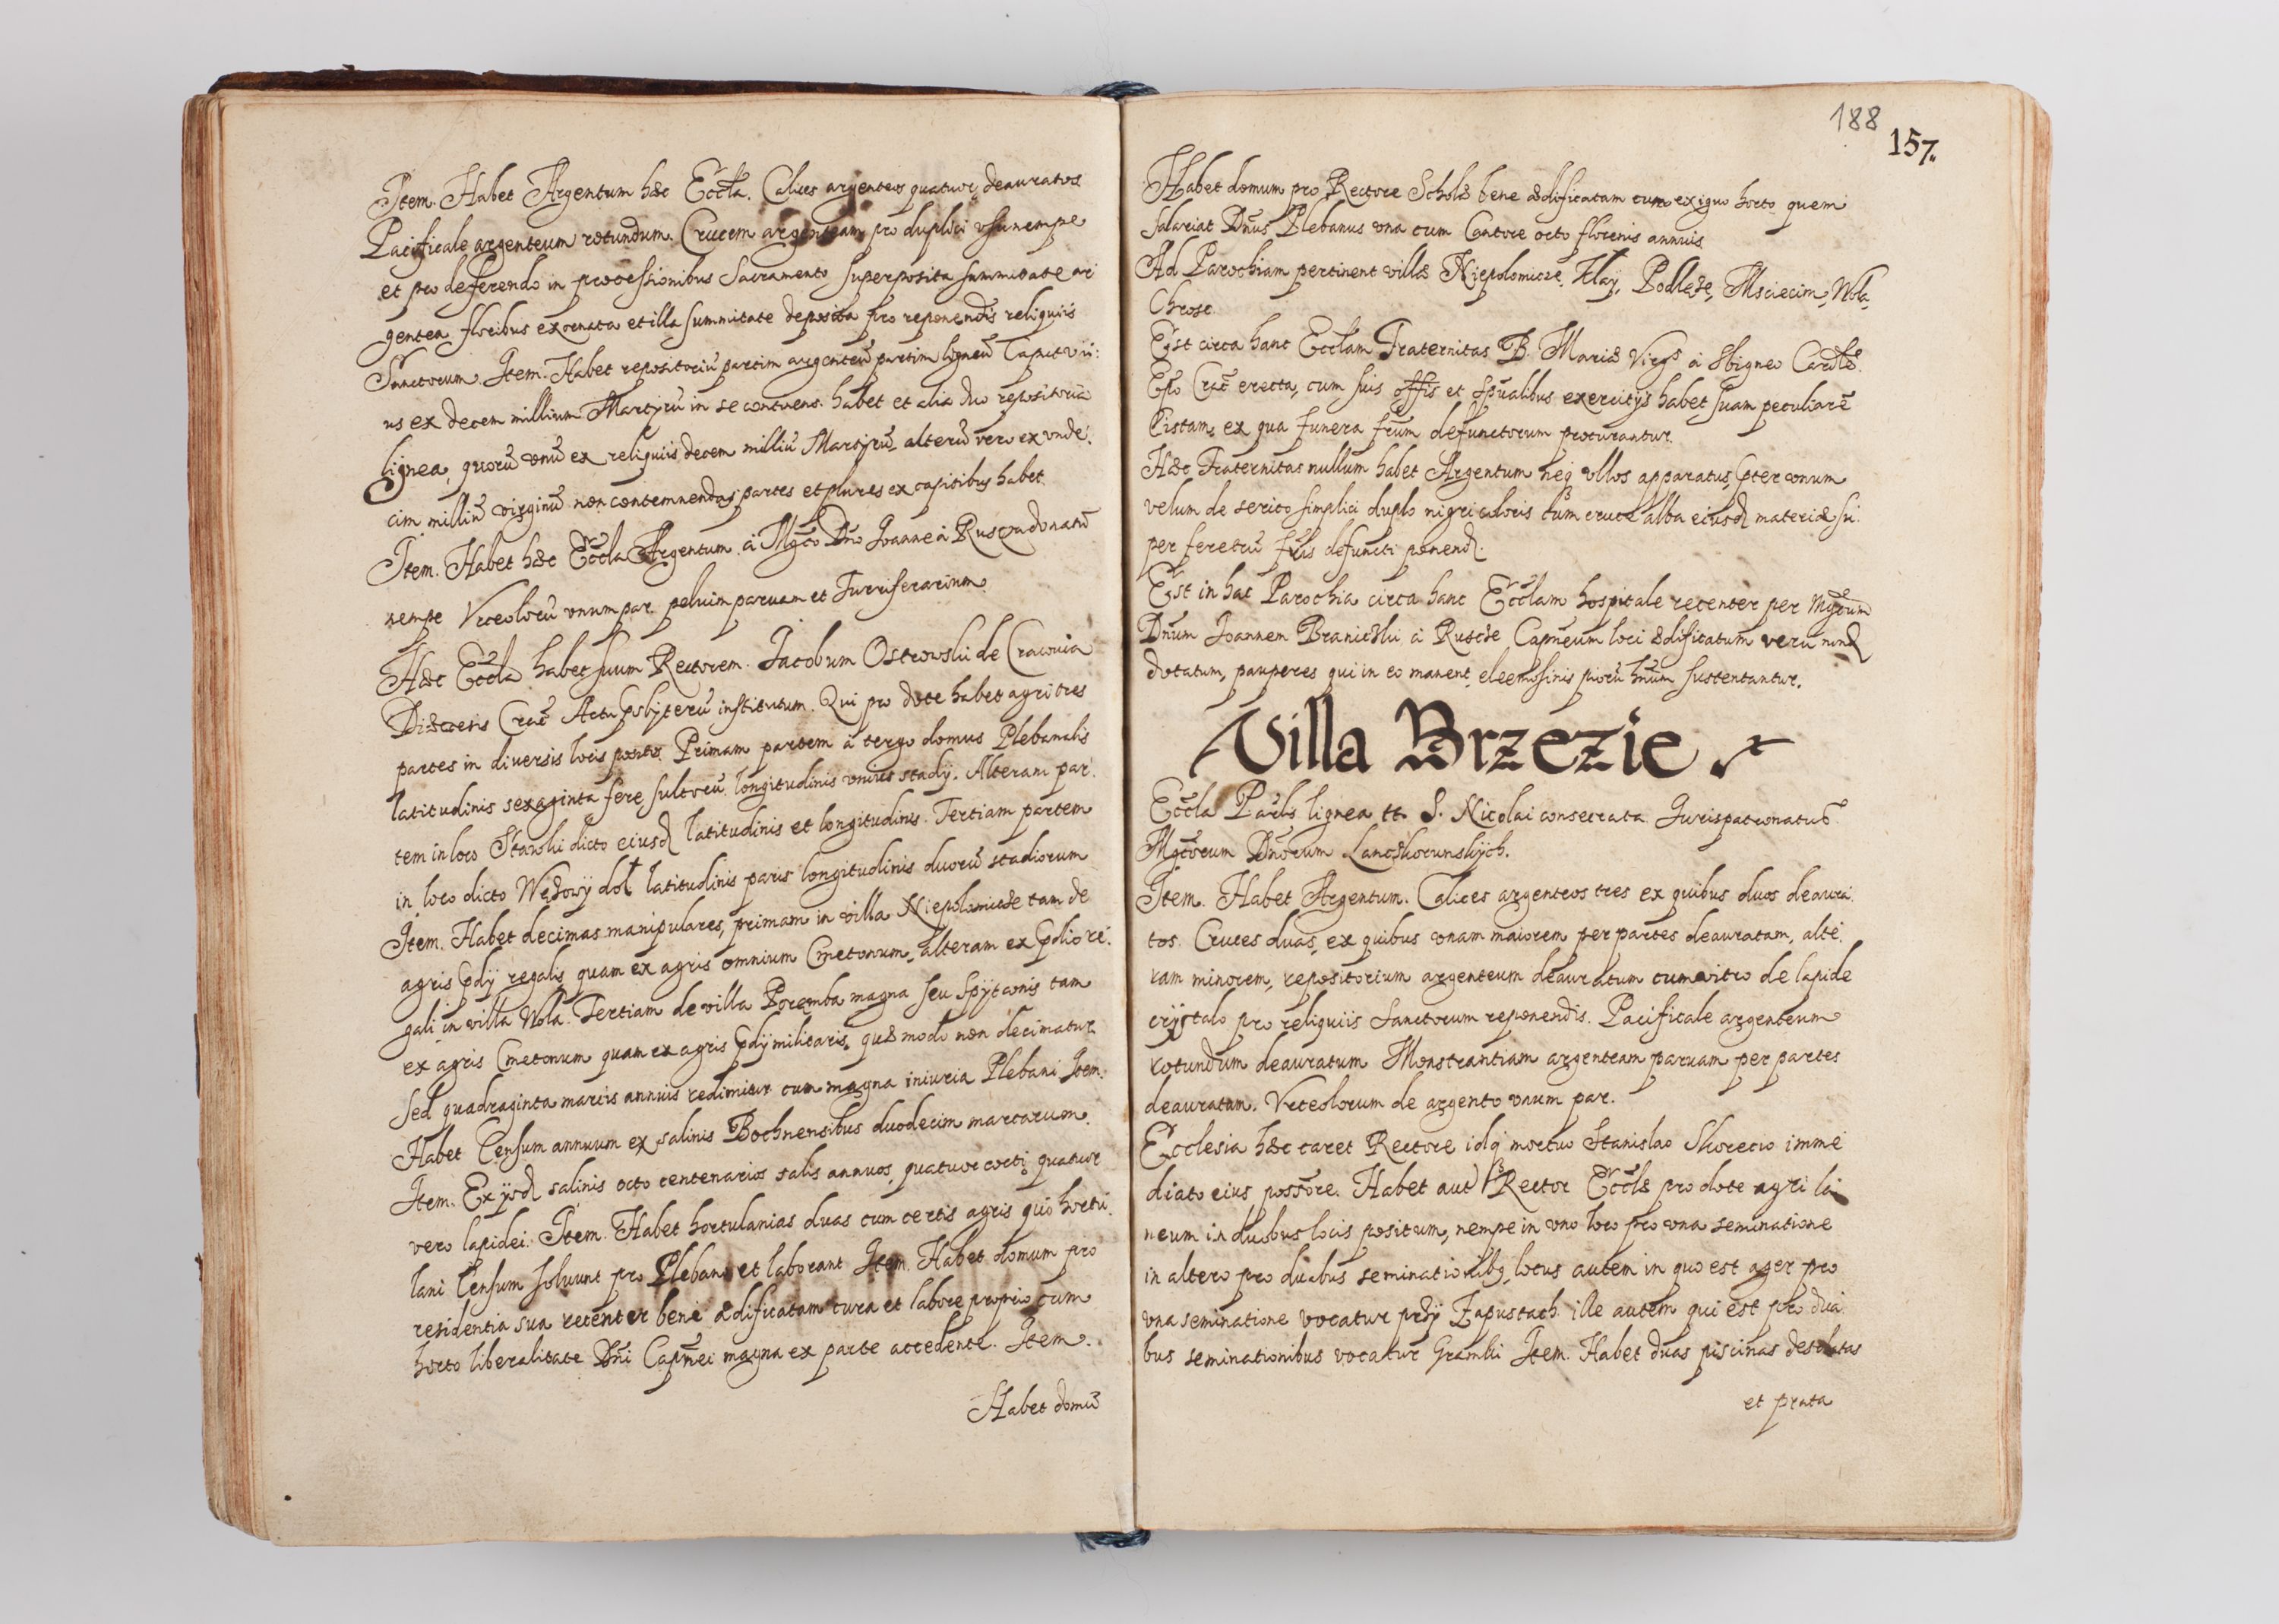 Item. Habet Argentum hæc Eccla. Calices argenteos quatuor deauratos
Pacificale argenteum rotundum. Crucem argenteam pro duplici usu nempe
et pro deferendo in processionibus Sacramento superposita summitate ar
gentea floribus exornata et illa summitate deposita pro reponendis reliquiis
Sanctorum. Item. Habet repositoriũ partim argenteũ partim ligneũ Caput vn:
us ex decem millium Martyrũ in se continens. habet et alia duo repositoria
lignea, quorũ vnũ ex reliquiis decem milliũ Martyrũ, alterũ vero ex vnde:
cim milliũ virginũ non contemnendas partes et plures ex capitibus habet.
Item. Habet hæc Eccla Argentum à Mgco Dno Joanne à Ruscza donatũ
nempe Vrceolorũ vnum par peluim paruam et Turriferarium.
Hæc Eccla habet suum Rectorem. Jacobum Ostrowski de Cracouia
Diæcesis Crac̃ Actu Psbyterũ institutum. Qui pro dote habet agri tres
partes in diuersis locis positos. Primam partem à tergo domus Plebanalis
latitudinis sexaginta fere sulcorũ longitudinis vnius stadij. Alteram par:
tem in loco Stawki dicto eiusd latitudinis et longitudinis. Tertiam partem
in loco dicto Wężowÿ doł latitudinis paris longitudinis duorũ stadiorum
Item. Habet decimas manipulares, primam in villa Niepolomicze tam de
agris Pdij regalis quam ex agris omnium Cmetonum, alteram ex Pdio re:
gali in villa Wola. Tertiam de villa Poremba magna seu Spytconis tam
ex agris Cmetonum quam ex agris Pdij militaris, quæ modo non decimatur
sed quadraginta marcis annuis redimitur cum magna iniuria Plebani Item.
Habet Censum annuum ex salinis Bochnensibus duodecim marcarum.
Item. Ex ijsd salinis octo centenarios salis annuos, quatuor cocti quatuor
vero lapidei. Item. Habet hortulanias duas cum certis agris quo hortu:
lani Censum soluunt pro Plebano et laborant Item. Habet domum pro
residentia sua recenter bene ædificatam cura et labore proprio cum
horto liberalitate Dni Capnei magna ex parte accedente. Item.
Habet domũ
188
157.
Habet domum pro Rectore Scholæ bene ædificatam cum exiguo horto quem
salariat Dnus Plebanus vna cum Cantore octo florenis annuis
Ad Parochiam pertinent villæ Niepolomicze, Kłay, Podlęże, Msciecim, Wola,
Chrose
Est circa hanc Ecclam Fraternitas B. Mariæ Virgs à Sbigneo Cardle
Epo Crac̃ erecta, cum suis offis et spualibus exercitijs habet suam peculiarẽ
Cistam, ex qua funera frum defunctorum procurantur.
Hæc Fraternitas nullum habet Argentum neq vllos apparatus, pter vnum
velum de serico simplici duplo nigri coloris cum cruce alba eiusd materiæ su:
per feretrũ fris defuncti ponend.
Est in hac Parochia circa hanc Ecclam hospitale recenter per Mgcum
Dnum Joannem Braniczki à Ruscze Capneum loci ædificatum verũ nond
dotatum, pauperes qui in eo manent eleemosinis piorũ hoũm sustentantur.
Villa Brzezie.
Eccla Parlis lignea tt. S. Nicolai consecrata. Jurispatronatus
Mgcorum Dnorum Lanczkorunskijch.
Item. Habet Argentum. Calices argenteos tres ex quibus duos deaura:
tos. Cruces duas, ex quibus vnam maiorem per partes deauratam, alte:
ram minorem, repositorium argenteum deauratum cum vitro de lapide
crystalo pro reliquiis Sanctorum reponendis. Pacificale argenteum
rotundum deauratum Monstrantiam argenteam paruam per partes
deauratam. Vrceolorum de argento vnum par.
Ecclesia hæc caret Rectore idq mortuo Stanislao Skorecio imme
diato eius possore. Habet aut Rector Ecclæ pro dote agri la:
neum in duobus locis positum, nempe in vno loco pro vna seminatione
in altero pro duabus seminationibq locus autem in quo est ager pro
vna seminatione vocatur przy Zapustach ille autem qui est pro dua:
bus seminationibus vocatur Grambki Item. Habet duas piscinas desolatas
et prata